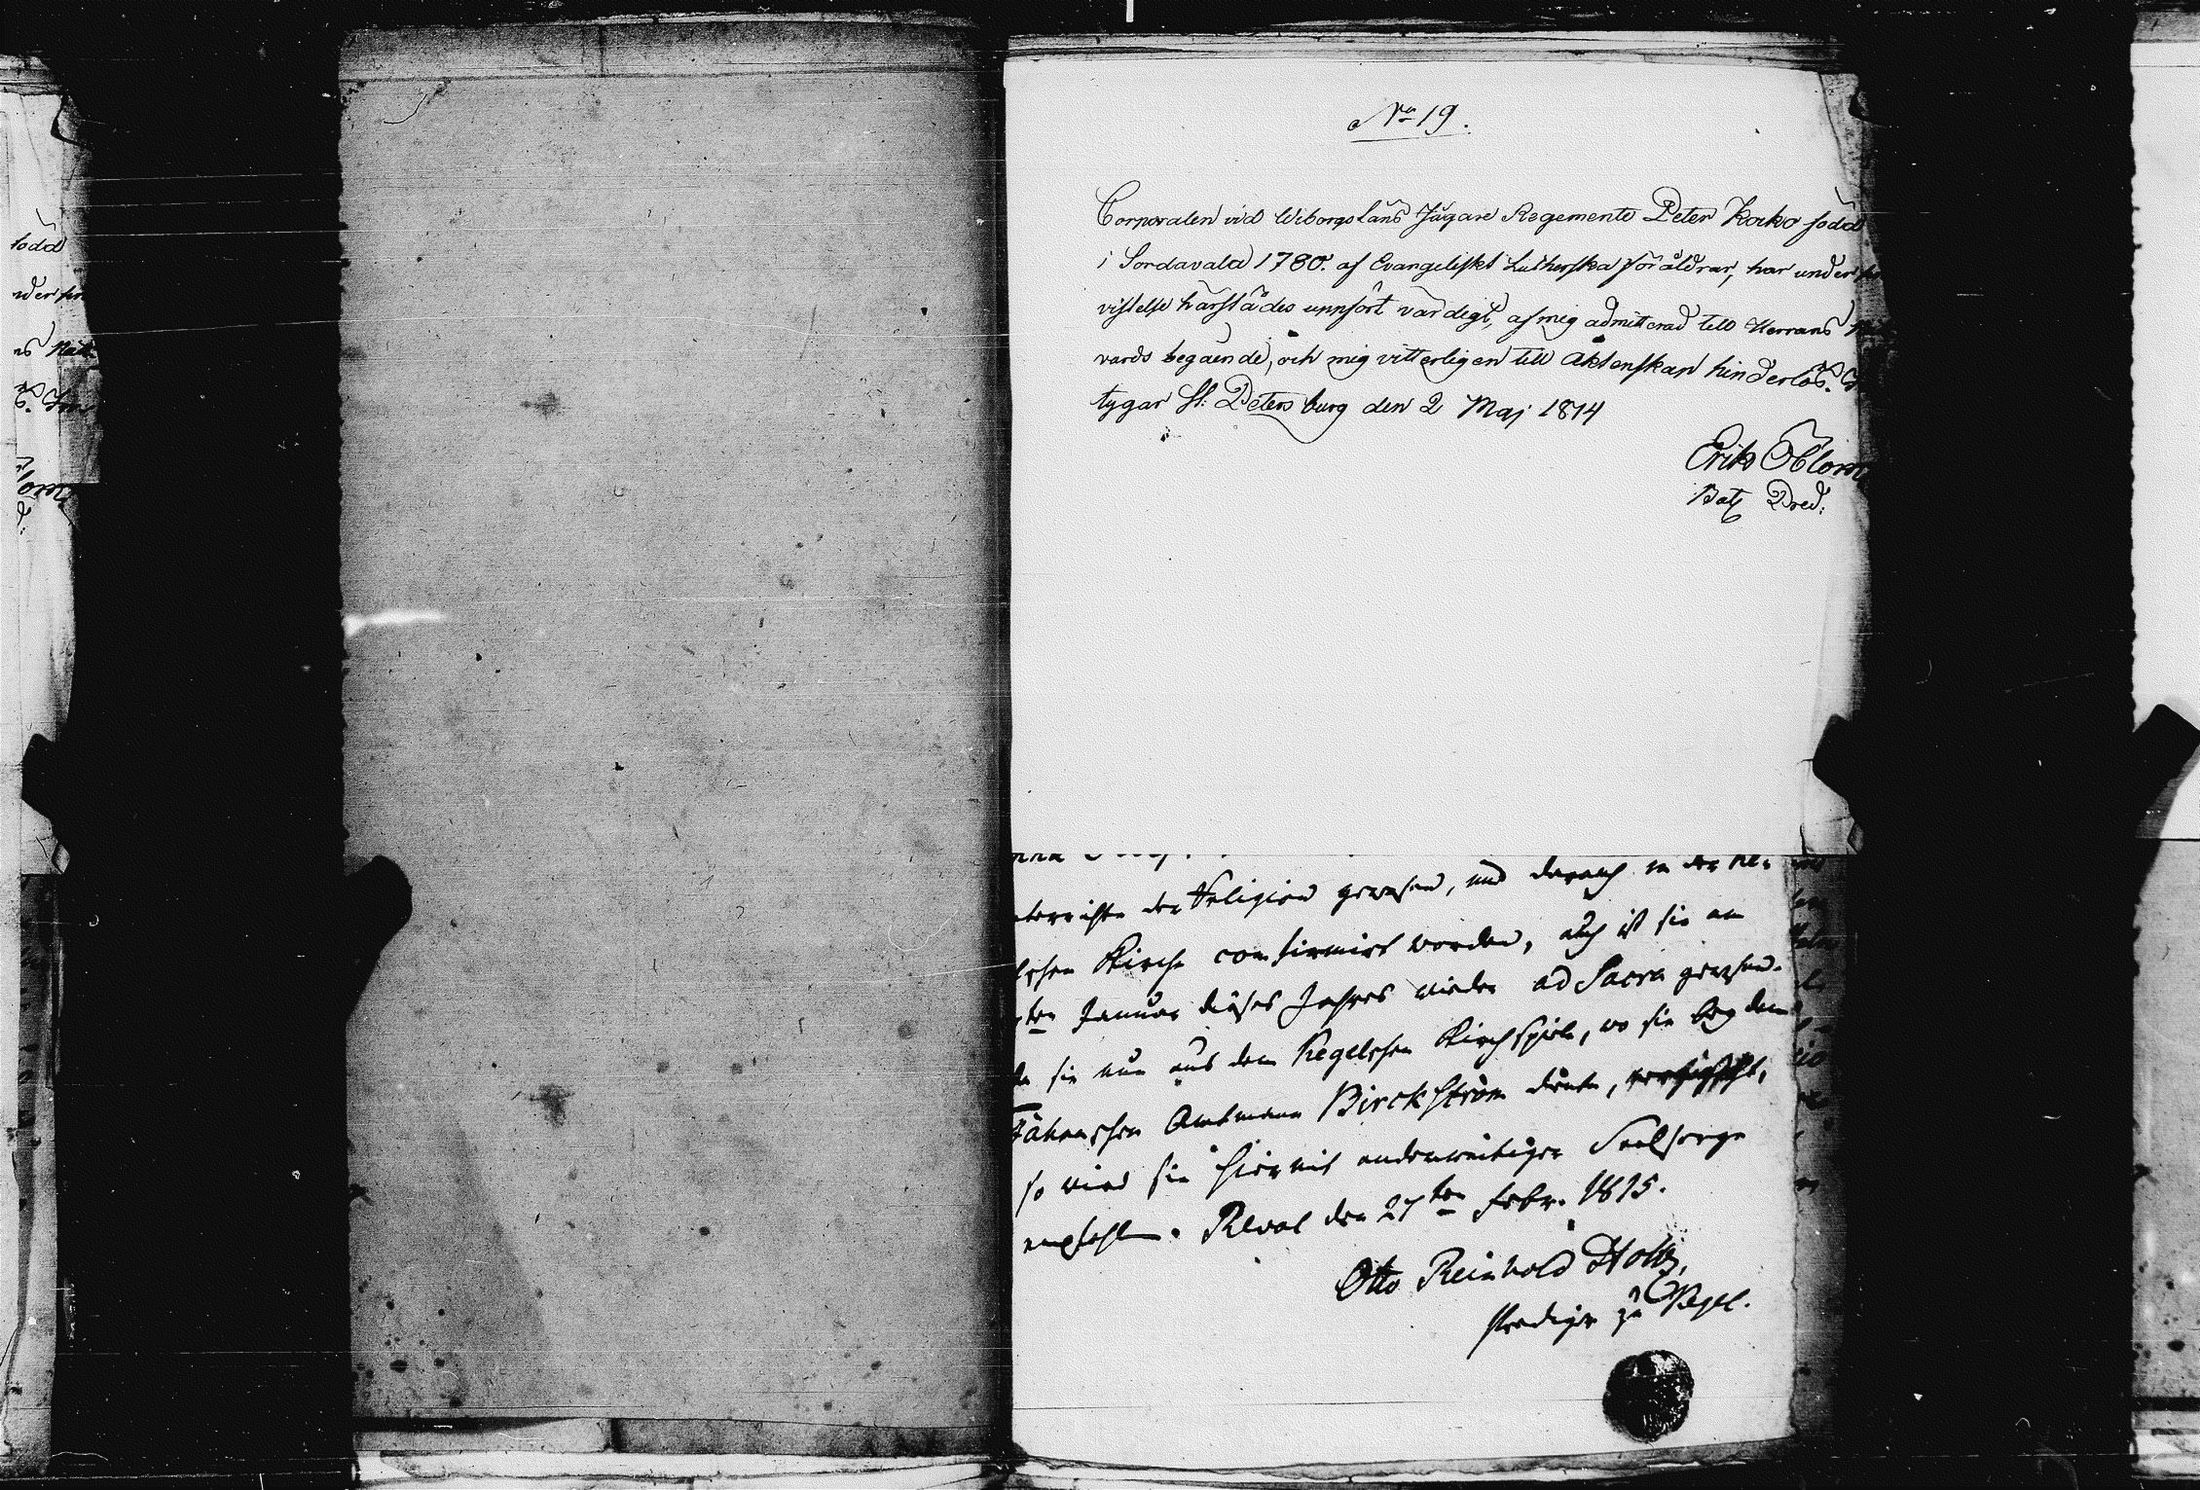 No 19.
Corporalen vid Wiborgs läns Jägare Regemente Peter Koiko född
i Sordavala 1780. af Evangeliskt Lutherska föräldrar, har under
vistelse härstädes uppfört värdigt, af mig admitterad till Herrans
vards begående, och mig vitterligen till Äktenskap hinderlös.
tygar St: Petersburg den 2 Maj 1814
Erik Öblom
Bat. Pred:
der Religion gewesen, und darauf in der Ke-
Kirche confirmirt worden, auch ist sie am
ten Januar dieses Jahres wieder ad Sacra gewesen.
sie nun aus dem Kegelschen Kirchspiele, wo sie bey dem
Amtmann Birckström diente,
so wird sie hiermit anderweitiger Seelsorge
empfohlen. Reval den 27ten Febr. 1815.
Otto Reinhold Holtz,
Prediger zu Kegel.
född